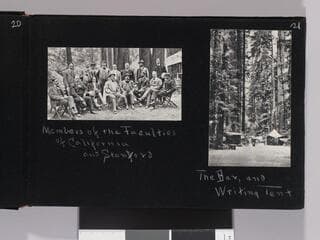 20
Members of the Faculties
of California
and Stanford
21
The Bar, and
Writing Tent